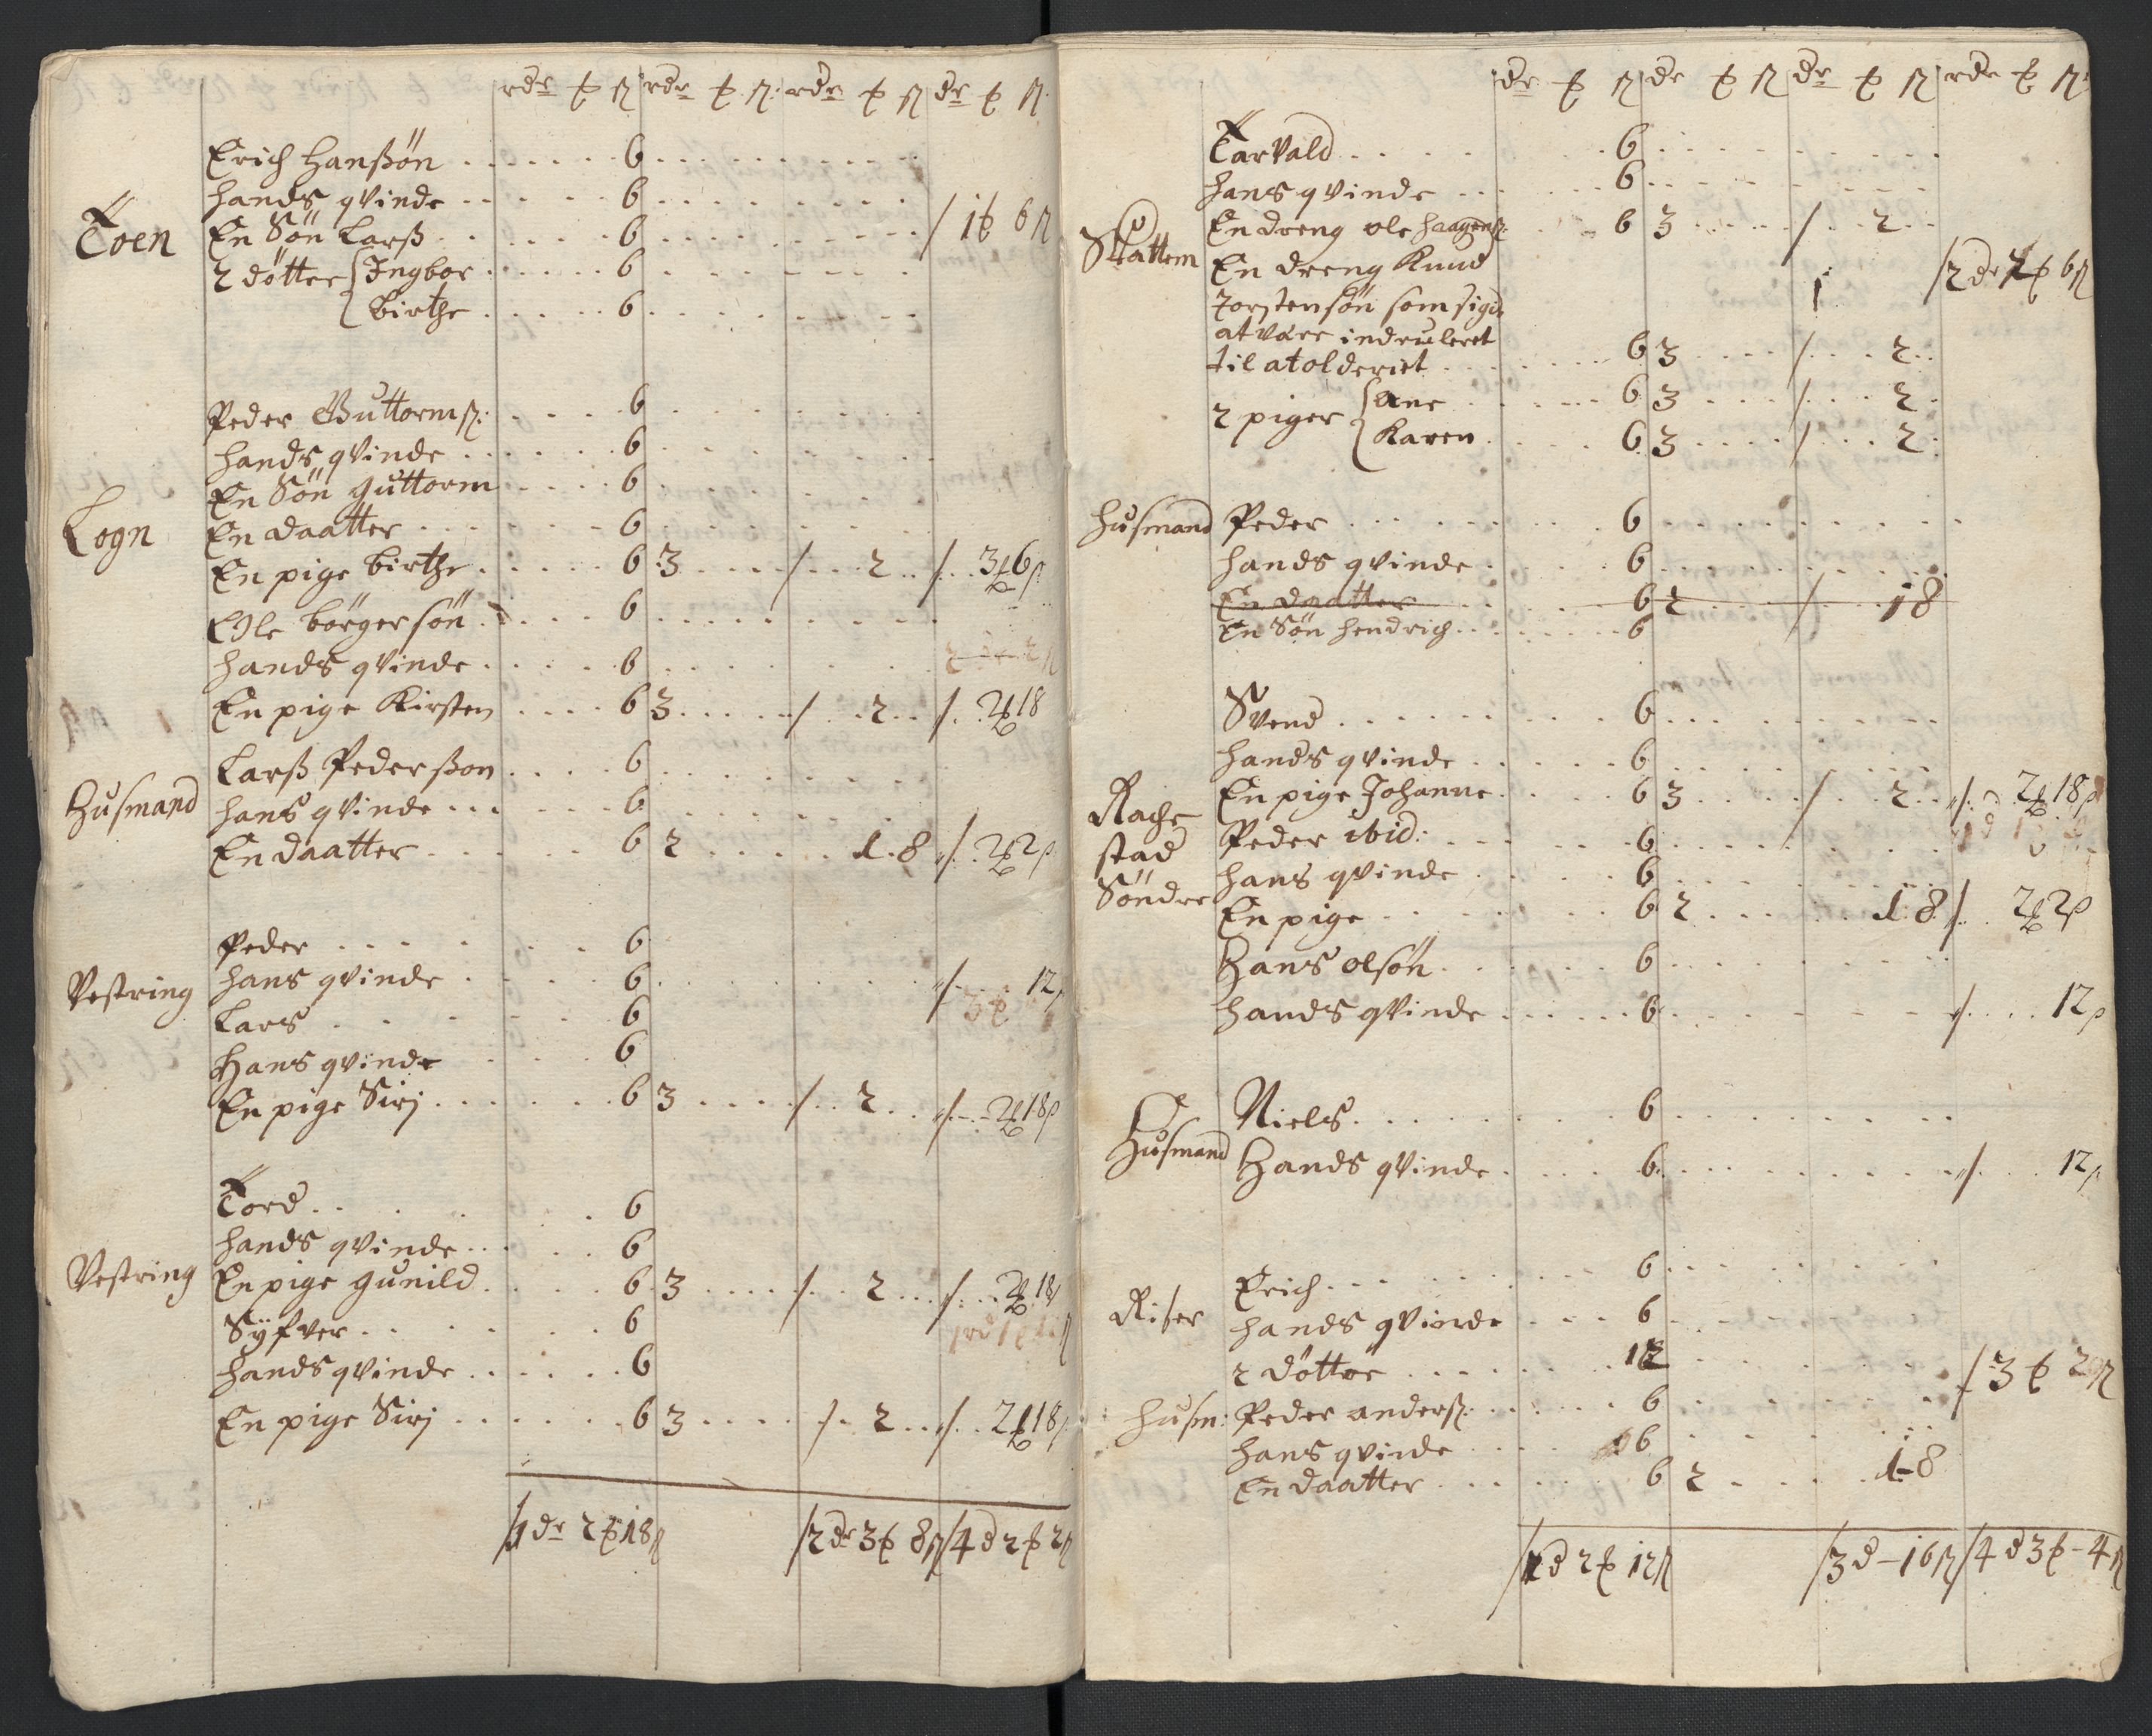 rdr ₺ ß rdr ₺ ß: rdr ₺ ß dr ₺ ß.
Erich Hanßön 6
hands qvinde 6
Toen En Sön Larß 6 / 1₺ 6ß
2 döttre Ingbor 6
birthe 6
Peder Guttormß: 6
hands qvinde 6
En Sön guttorm 6
Logn En daatter 6
En pige birthe 6 3 / 2 /. 3₺6ß
Ole börgersön 6
hands qvinde 6
En pige Kirsten 6 3 / 2 /. 2₺18
Larß Pederßon 6
Husmand hans qvinde 6
En daatter 6 2 1.8 /. 2₺2ß
Peder 6
Vestring hans qvinde 6 /. 12ß
Lars 6 3₺
Hans qvinde 6
En pige Sirj 6 3 / 2 /. 2₺18ß
Tord 6
hands qvinde 6
Vestring En pige gunild 6 3 / 2 /. 2₺18ß
Sÿfver 6
hands qvinde 6
En pige Sirj 6 3 /. 2 /. 2₺18ß
/1 dr 2₺18ß /2 dr 3₺ 8ß /4 d 2₺ 2ß
dr ₺ ß dr ₺ ß dr ₺ ß rdr ₺ ß:
Tarvald 6
hans qvinde 6
Skattem En dreng ole haagenß: 6 3 / 2
En dreng Knud 1 /2 dr 2₺ 6ß
Torstensön som sigis
at være indruleret
til atolderiet 6 3 /. 2
2 piger ane 6 3 /. 2
Karen 6 3 /. 2
husmand Peder 6
hands qvinde 6
En daatter 6 2 / 18
En Sön hendrich 6
Svend 6
hands qvinde 6
Rache En pige Johanne 6 3 / 2 /. 2₺18ß
stad Peder ibid: 6
Söndre hans qvinde 6
En pige 6 2 1.8 /. 2₺2ß
Hans olsön 6
hands qvinde 6 /. 12ß
Niels 6
Husmand Hands qvinde 6 /. 12ß
Erich 6
Riser hands qvinde 6
2 döttre 12 / 3₺ 2ß
husm: Peder andersß: 6
hans qvinde 6
En daatter 6 2 1-8
/1 d 2₺ 12ß /3 d - 16ß /4 d 3₺ - 4ß